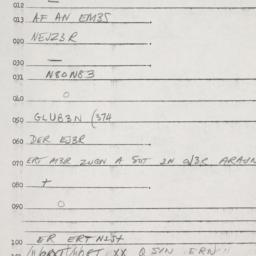 012 —
013 AF AN EM35
020 NEJZ3R
030 —
031 N8ON83
040 O
050 GLUB3N (374
060 DER EJ3R
070 ERT M3R ZUGN A SOT IN
080 +
090 O
100 ER ERT NIST
XX